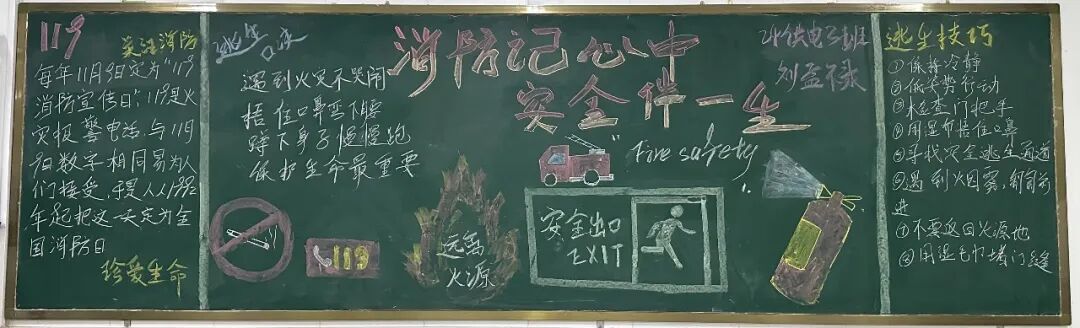 119
关注消防
每年11月9日定为"119
消防宣传日",119是火
灾报警电话,与11月
9日数字相同易为人
们接受,于是人从1992
年起把这一天定为全
国消防日
珍爱生命
逃生
口诀
遇到火灾不哭闹
捂住口鼻弯下腰
蹲下身子慢慢跑
保护生命最重要
119
远离
火源
消防记心中
安全伴一生
24铁电3班
刘孟禄
Fire safety
安全出口
EXIT
逃生技巧
①保持冷静
②低姿势行动
③检查门把手
④用湿布捂住口鼻
⑤寻找安全逃生通道
⑥遇到火图雾,匍匐前
进
⑦不要返回火源地
⑧用湿毛巾堵门缝